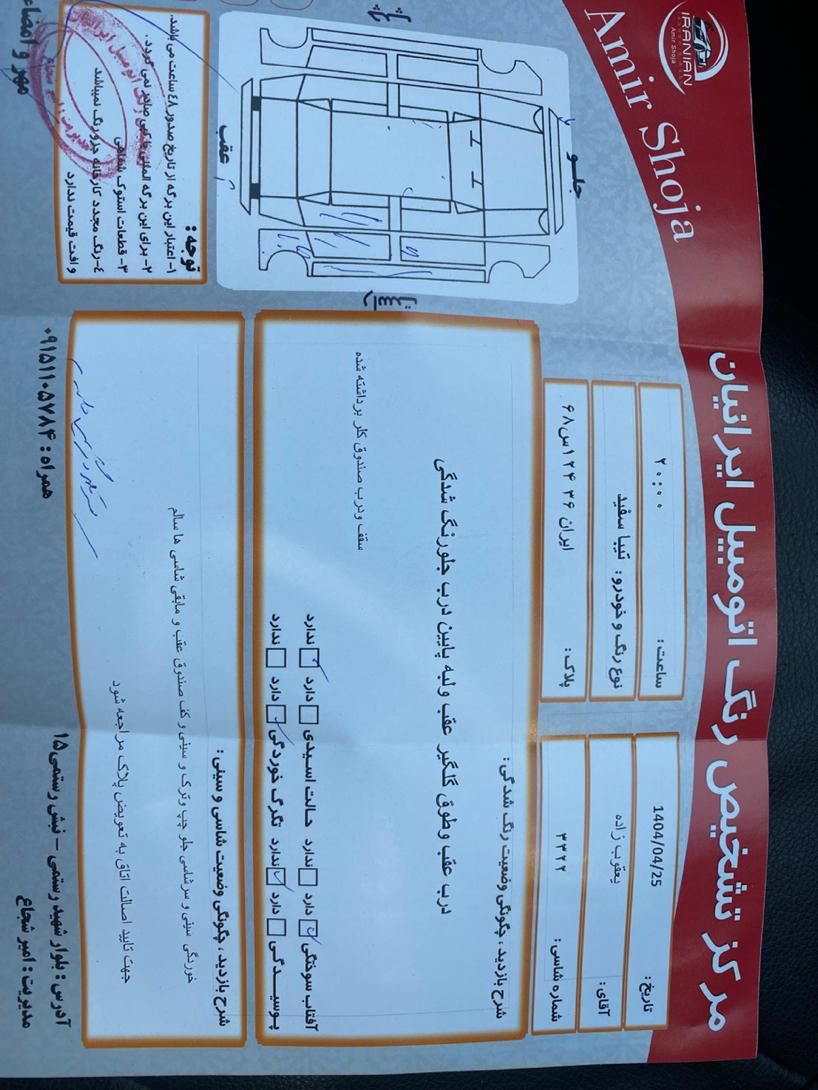 مرکز تشخیص رنگ اتومبیل ایرانیان
IRANIAN
Amir Shoja
Amir Shoja
تاریخ : 1404/04/25
ساعت : ۲۰:۰۰
آقای : یعقوب زاده
نوع رنگ و خودرو : تیبا سفید
شماره شاسی : ۳۳۲۲
پلاک : ایران ۳۶ ۱۲۴س۶۸
جلو
عقب
شرح بازدید ، چگونگی وضعیت رنگ شدگی :
درب عقب وطوق گلگیر عقب ولبه پایین درب جلورنگ شدگی
سقف ودرب صندوق کلر برداشته شده
آفتاب سوختگی دارد ندارد حالت اسیدی دارد ندارد
پوسیدگی دارد ندارد تگرگ خوردگی دارد ندارد
شرح بازدید ، چگونگی وضعیت شاسی و سینی :
خوردگی سینی و سرشاسی جلو چپ وترک و سینی و کف صندوق عقب و مابقی شاسی ها سالم
جهت تایید اصالت اتاق به تعویض پلاک مراجعه شود
توجه :
۱- اعتبار این برگه از تاریخ صدور ۴۸ ساعت می باشد.
۲- برای این برگه المثنی صادر نمی گردد.
۳- قطعات استوک
۴-رنگ مجدد کارخانه جزورنگ نمیباشد
و افت قیمت ندارد
آدرس : بلوار شهید رستمی – نبش رستمی ۱۵
مدیریت : امیر شجاع
همراه : ۰۹۱۵۱۱۰۵۷۸۴
مهر و امضاء